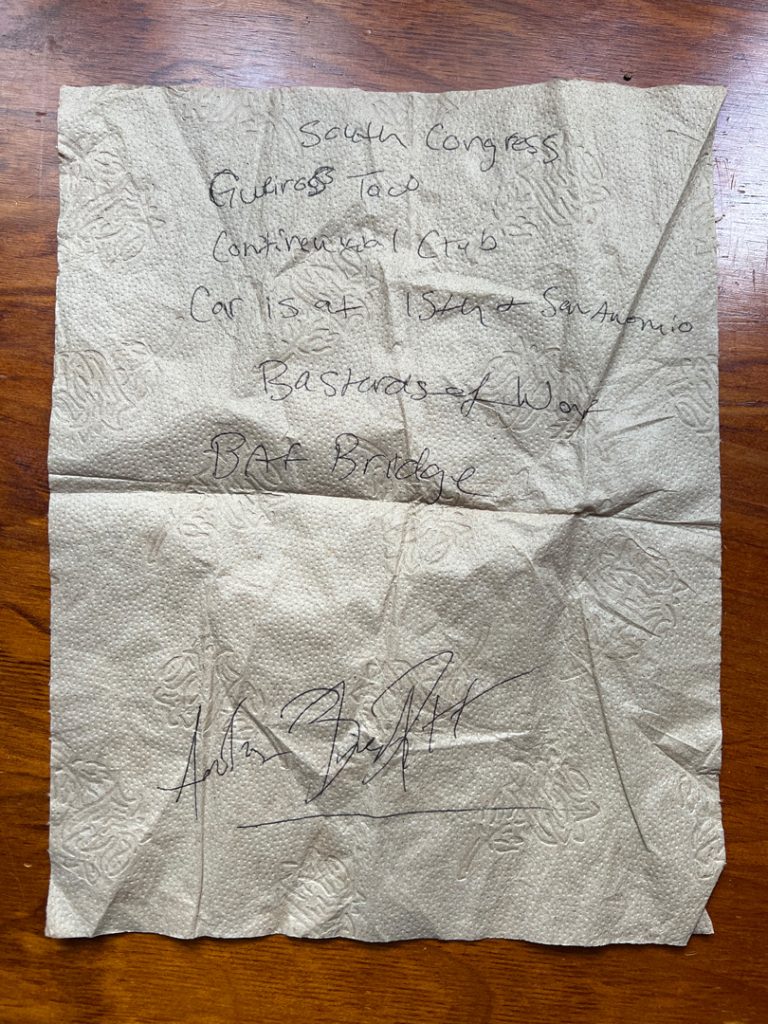 South Congress
Gueros Taco
Continental Club
Car is at 15th + San Antonio
Bastards of War
BAt Bridge